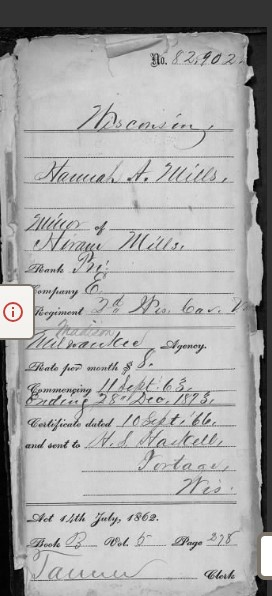 No. 82,902.
Wisconsin,
Hannah A. Mills,
Minor of
Hiram Mills,
Rank Pri.
Company E.
Regiment 2d Wis. Cav. V
Madison
Milwaukee Agency.
Rate per month $ 8.
Commencing 11 Sept. 63.
Ending 28th Dec. 1873.
Certificate dated 10 Sept. 66.
and sent to H. S. Haskell,
Portage,
Wis.
Act 14th July, 1862.
Book B Vol. 5 Page 278
Tanner Clerk